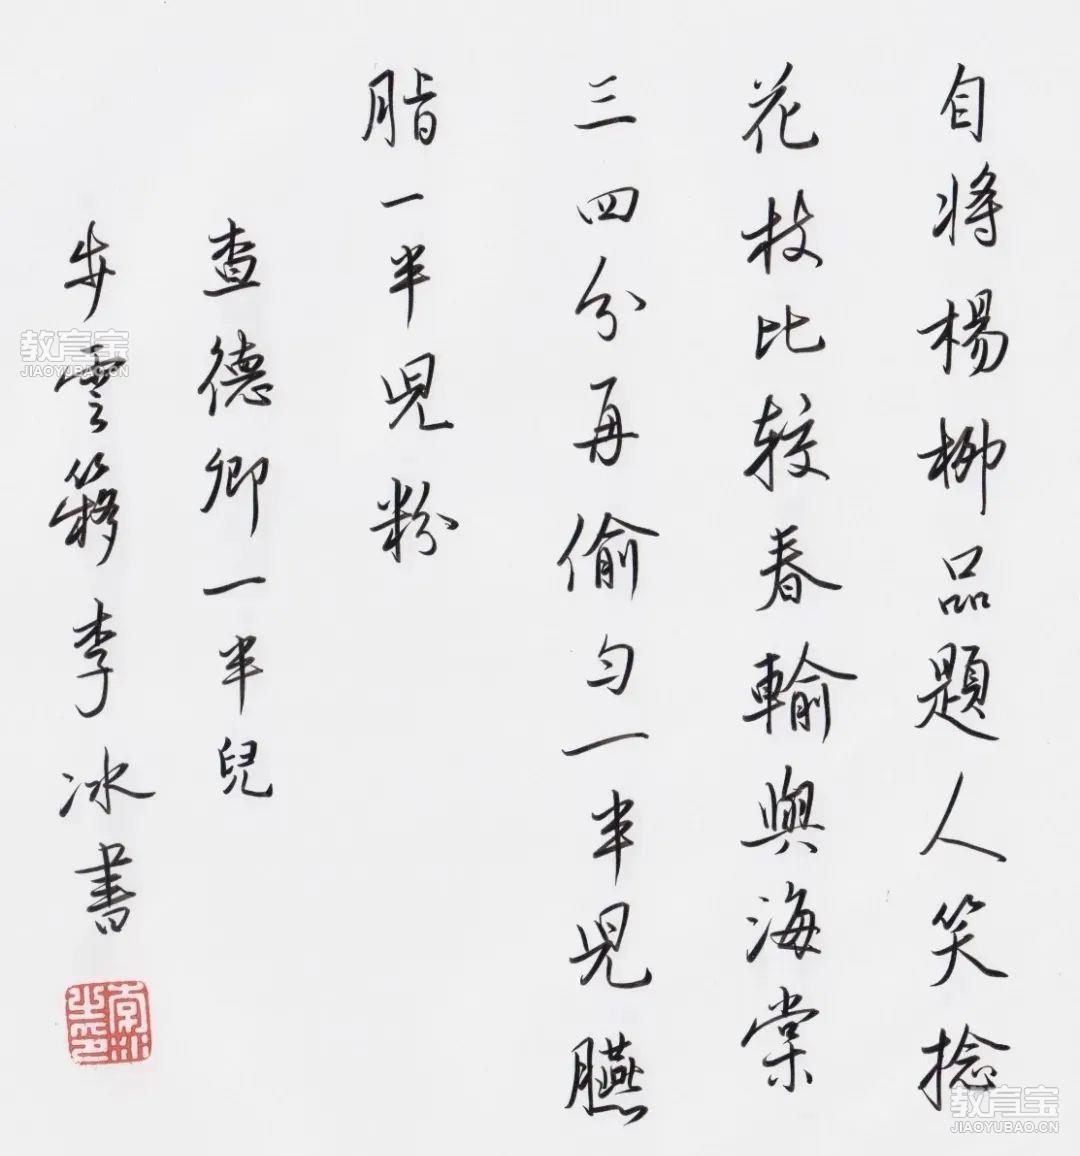 自将楊柳品題人笑捻
花枝比較春輸與海棠
三四分再偷勻一半兒臙
脂一半兒粉
查德卿一半兒
步雲簃李冰書
教育宝
JIAOYUBAO.CN
教育宝
JIAOYUBAO.CN